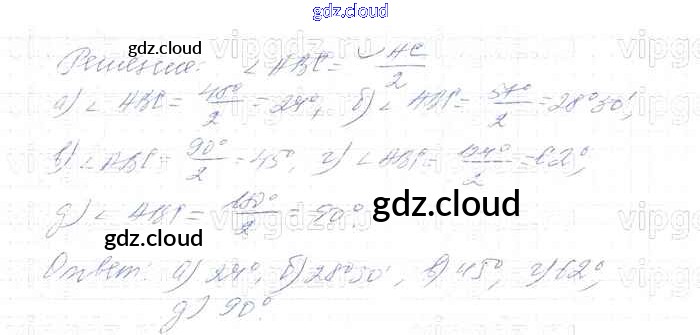 gdz.cloud
gdz.cloud
Решение: ∠ABC = ◡AC/2
а) ∠ABC = 48°/2 = 24°, б) ∠ABC = 57°/2 = 28°30′,
в) ∠ABC = 90°/2 = 45°, г) ∠ABC = 124°/2 = 62°,
gdz.cloud
д) ∠ABC = 180°/2 = 90°.
gdz.cloud
Ответ: а) 24°, б) 28°30′, в) 45°, г) 62°,
д) 90°.